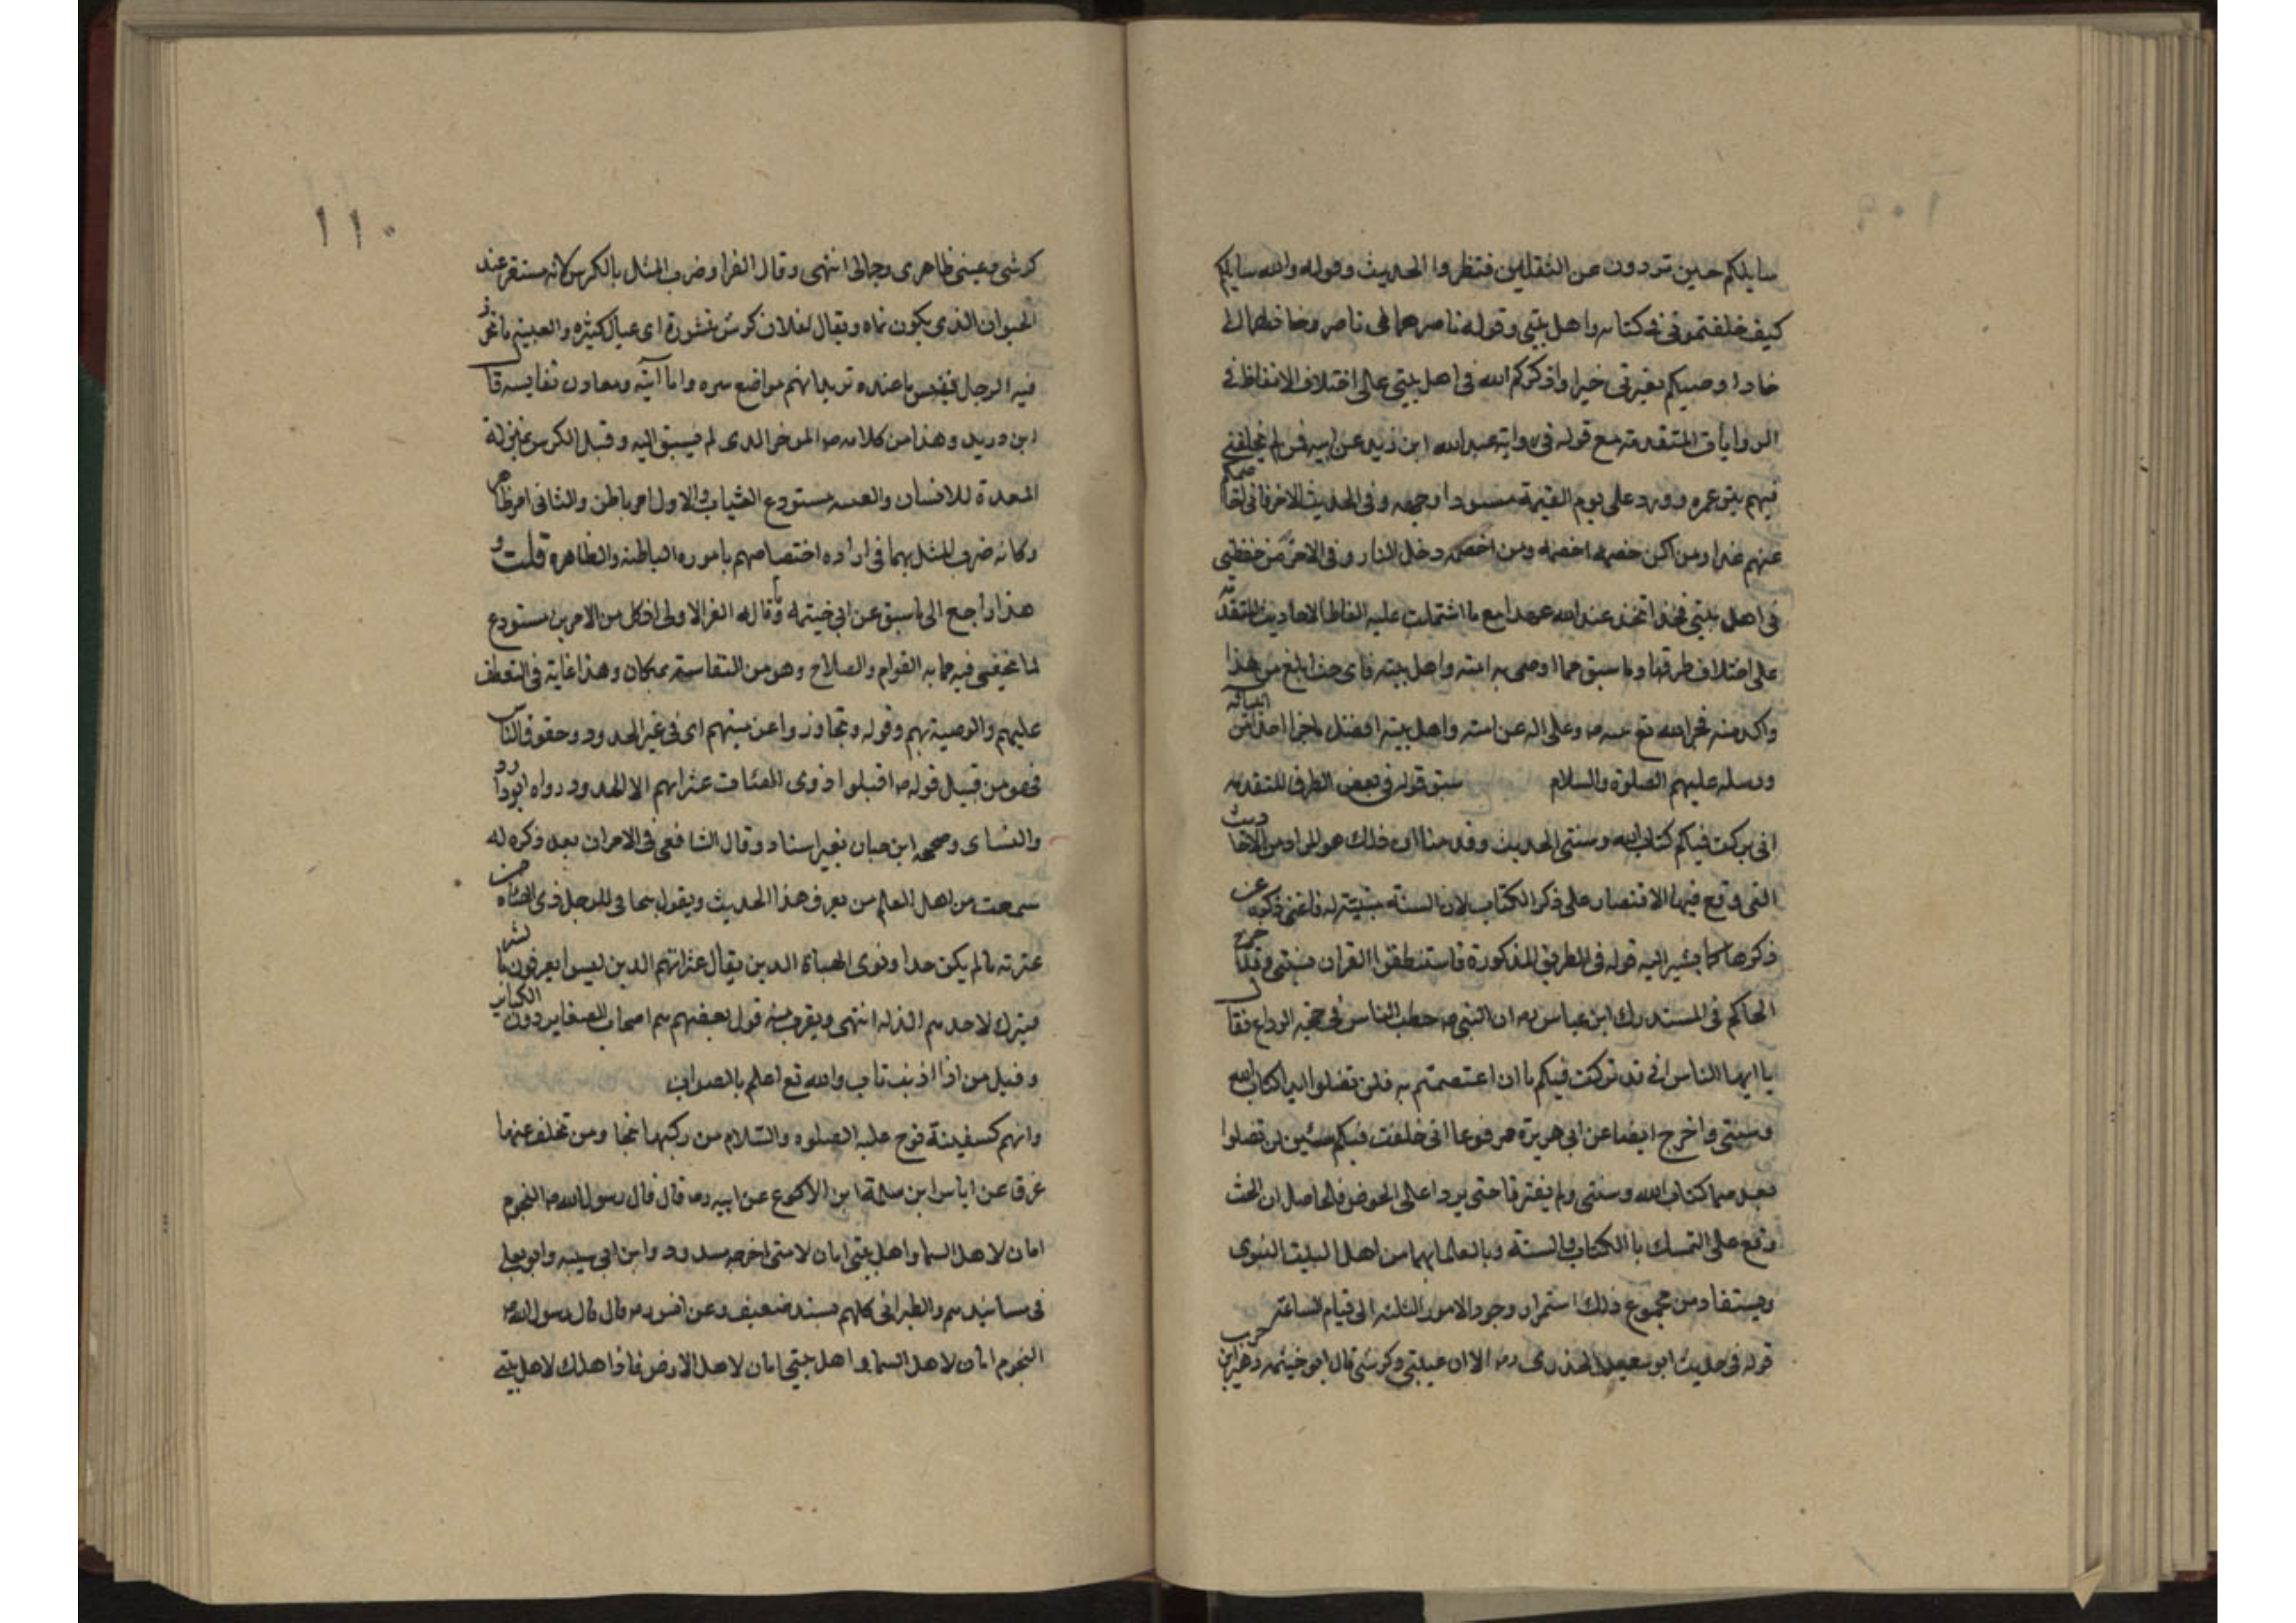 سايلكم حين تردون عن الثقلين فنظروا الحديث وقوله والله سايلكم
كيف خلفتموني في كتابه واهل بيتي وقوله ناصرهما لي ناصر وخاذلهما لي
خاذل اوصيكم بعترتي خيرا واذكركم الله في اهل بيتي على اختلاف الالفاظ في
الروايات المتقدمة مع قوله في رواية عبد الله ابن زيد عن ابيه فمن لم يخلفني
فيهم بتر عمره وورد علي يوم القيمة مسودا وجهه وفي الحديث الاخر فاني اخاصمكم
عنهم غدا ومن اكن خصمه اخصمه ومن اخصمه دخل النار وفي الاخر من حفظني
في اهل بيتي فقد اتخذ عند الله عهدا مع ما اشتملت عليه الفاظ الاحاديث المتقدمة
على اختلاف طرقها وما سبق مما اوصى به امته واهل بيته فاي حث ابلغ من هذا
واكد منه فجزا الله تع نبيه وعلى اله عن امته واهل بيته افضل ما جزا احدا من انبيائه
ورسله عليهم الصلوة والسلام سبق قوله في بعض الطرق المتقدمه
اني تركت فيكم كتاب الله وسنتي الحديث وقدمنا ان ذلك هو المراد من الاحاديث
التي وقع فيها الاقتصار على ذكر الكتاب لان السنة مبينة له فاغنى ذكره عن
ذكرها كما يشير اليه قوله في الطرق المذكورة فاستنطقوا القران بسنتي وقد اخرج
الحاكم في المستدرك ابن عباس رض ان النبي ص خطب الناس في حجة الوداع فقال
يا ايها الناس اني قد تركت فيكم ما ان اعتصمتم به فلن تضلوا ابدا كتاب الله
وسنتي واخرج ايضا عن ابي هريرة مرفوعا اني خلفت فيكم شيئين لن تضلوا
بعدهما كتاب الله وسنتي ولم يفترقا حتى يردا على الحوض فالحاصل ان الحث
وقع على التمسك باالكتاب والسنة وبالعلما بهما من اهل البيت النبوي
ويستفاد من مجموع ذلك استمرار وجود الامور الثلثه الى قيام الساعة
قوله في حديث ابو سعيد الخدري رض الا ان عيبتي وكرشي قال ابو خيثمه زهير ابن حرب
١١٠
كرشي وعيبتي ظاهري وجمالي انتهى وقال الفرا وضرب المثل بالكرش لانه مستقر غذا
الحيوان الذي يكون نماه ويقال لفلان كرش منثورة اي عيال كثيره والعيبة ما يحرز
فيه الرجل نفيس ما عنده تريد انهم مواضع سره واماانته ومعادن نفايسه قال
ابن دريد وهذا من كلامه ص الموخر الذي لم يسبق اليه وقيل الكرش بمنزلة
المعدة للانسان والعيبه مستودع الثياب والاول امر باطن والثاني امر ظاهر
وكانه ضرب المثل بهما في اراده اختصاصهم باموره الباطنه والظاهره قلت و
هذا راجع الى ما سبق عن ابي خيثمه وما قاله الفرا الاولى اذ كل من الامرين مستودع
لما يخفى فيه مما به القوام والصلاح وهو من النفاسته بمكان وهذا غاية في التعطف
عليهم والوصية بهم وقوله وتجاوزوا عن مسيئهم اي في غير الحدود وحقوق الناس
فهو من قبيل قوله ص اقيلوا ذوي الهئات عثراتهم الا الحدود رواه ابوداود
والنساي وصححه ابن حبان بغير اسناد وقال الشافعي في الامران بعد ذكره له
سمعت من اهل العلم من يعرف هذا الحديث ويقول يتجافى للرجل ذي الهئاه عن
عثرته ما لم يكن حدا وذوى الهياة الذين يقال عثراتهم الذين ليسوا يعرفون بالشر
فيترك لاحدهم الزله انتهى ويقرب منه قول بعضهم هم اصحاب الصغاير دون الكباير
وقيل من اذا اذنب تاب والله تع اعلم بالصواب
وانهم كسفينة نوح عليه الصلوه والسلام من ركبها نجا ومن تخلف عنها
غرق عن اياس ابن سلمة ابن الاكوع عن ابيه رض قال قال رسول الله ص النجوم
امان لاهل السما واهل بيتي امان لامتي اخرجه مسدد وابن ابي شيبه وابو يعلى
في مسانيدهم والطبراني كلهم بسند ضعيف وعن انس رض قال قال رسول الله ص
النجوم امان لاهل السما واهل بيتي امان لاهل الارض فاذا هلك لاهل بيتي